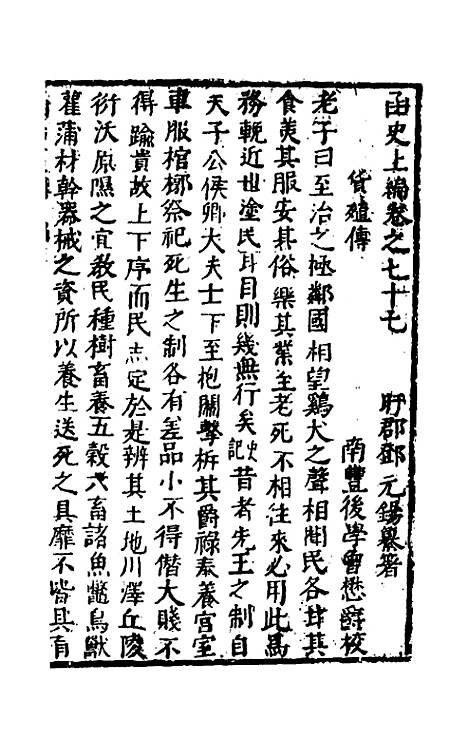 函史上編卷之七十七 盱郡鄧元錫纂著
貨殖傳 南豐後學曾懋爵校
老子曰至治之極鄰國相望鷄犬之聲相聞民各甘其
食美其服安其俗樂其業至老死不相往來必用此爲
務輓近世塗民耳目則幾無行矣史記昔者先王之制自
天子公侯卿大夫士下至抱關擊柝其爵祿奉養宮室
車服棺槨祭祀死生之制各有差品小不得僭大賤不
得踰貴故上下序而民志定於是辨其土地川澤丘陵
衍沃原隰之宜敎民種樹畜養五穀六畜諸魚鱉鳥獸
雚蒲材幹器械之資所以養生送死之具靡不皆具有